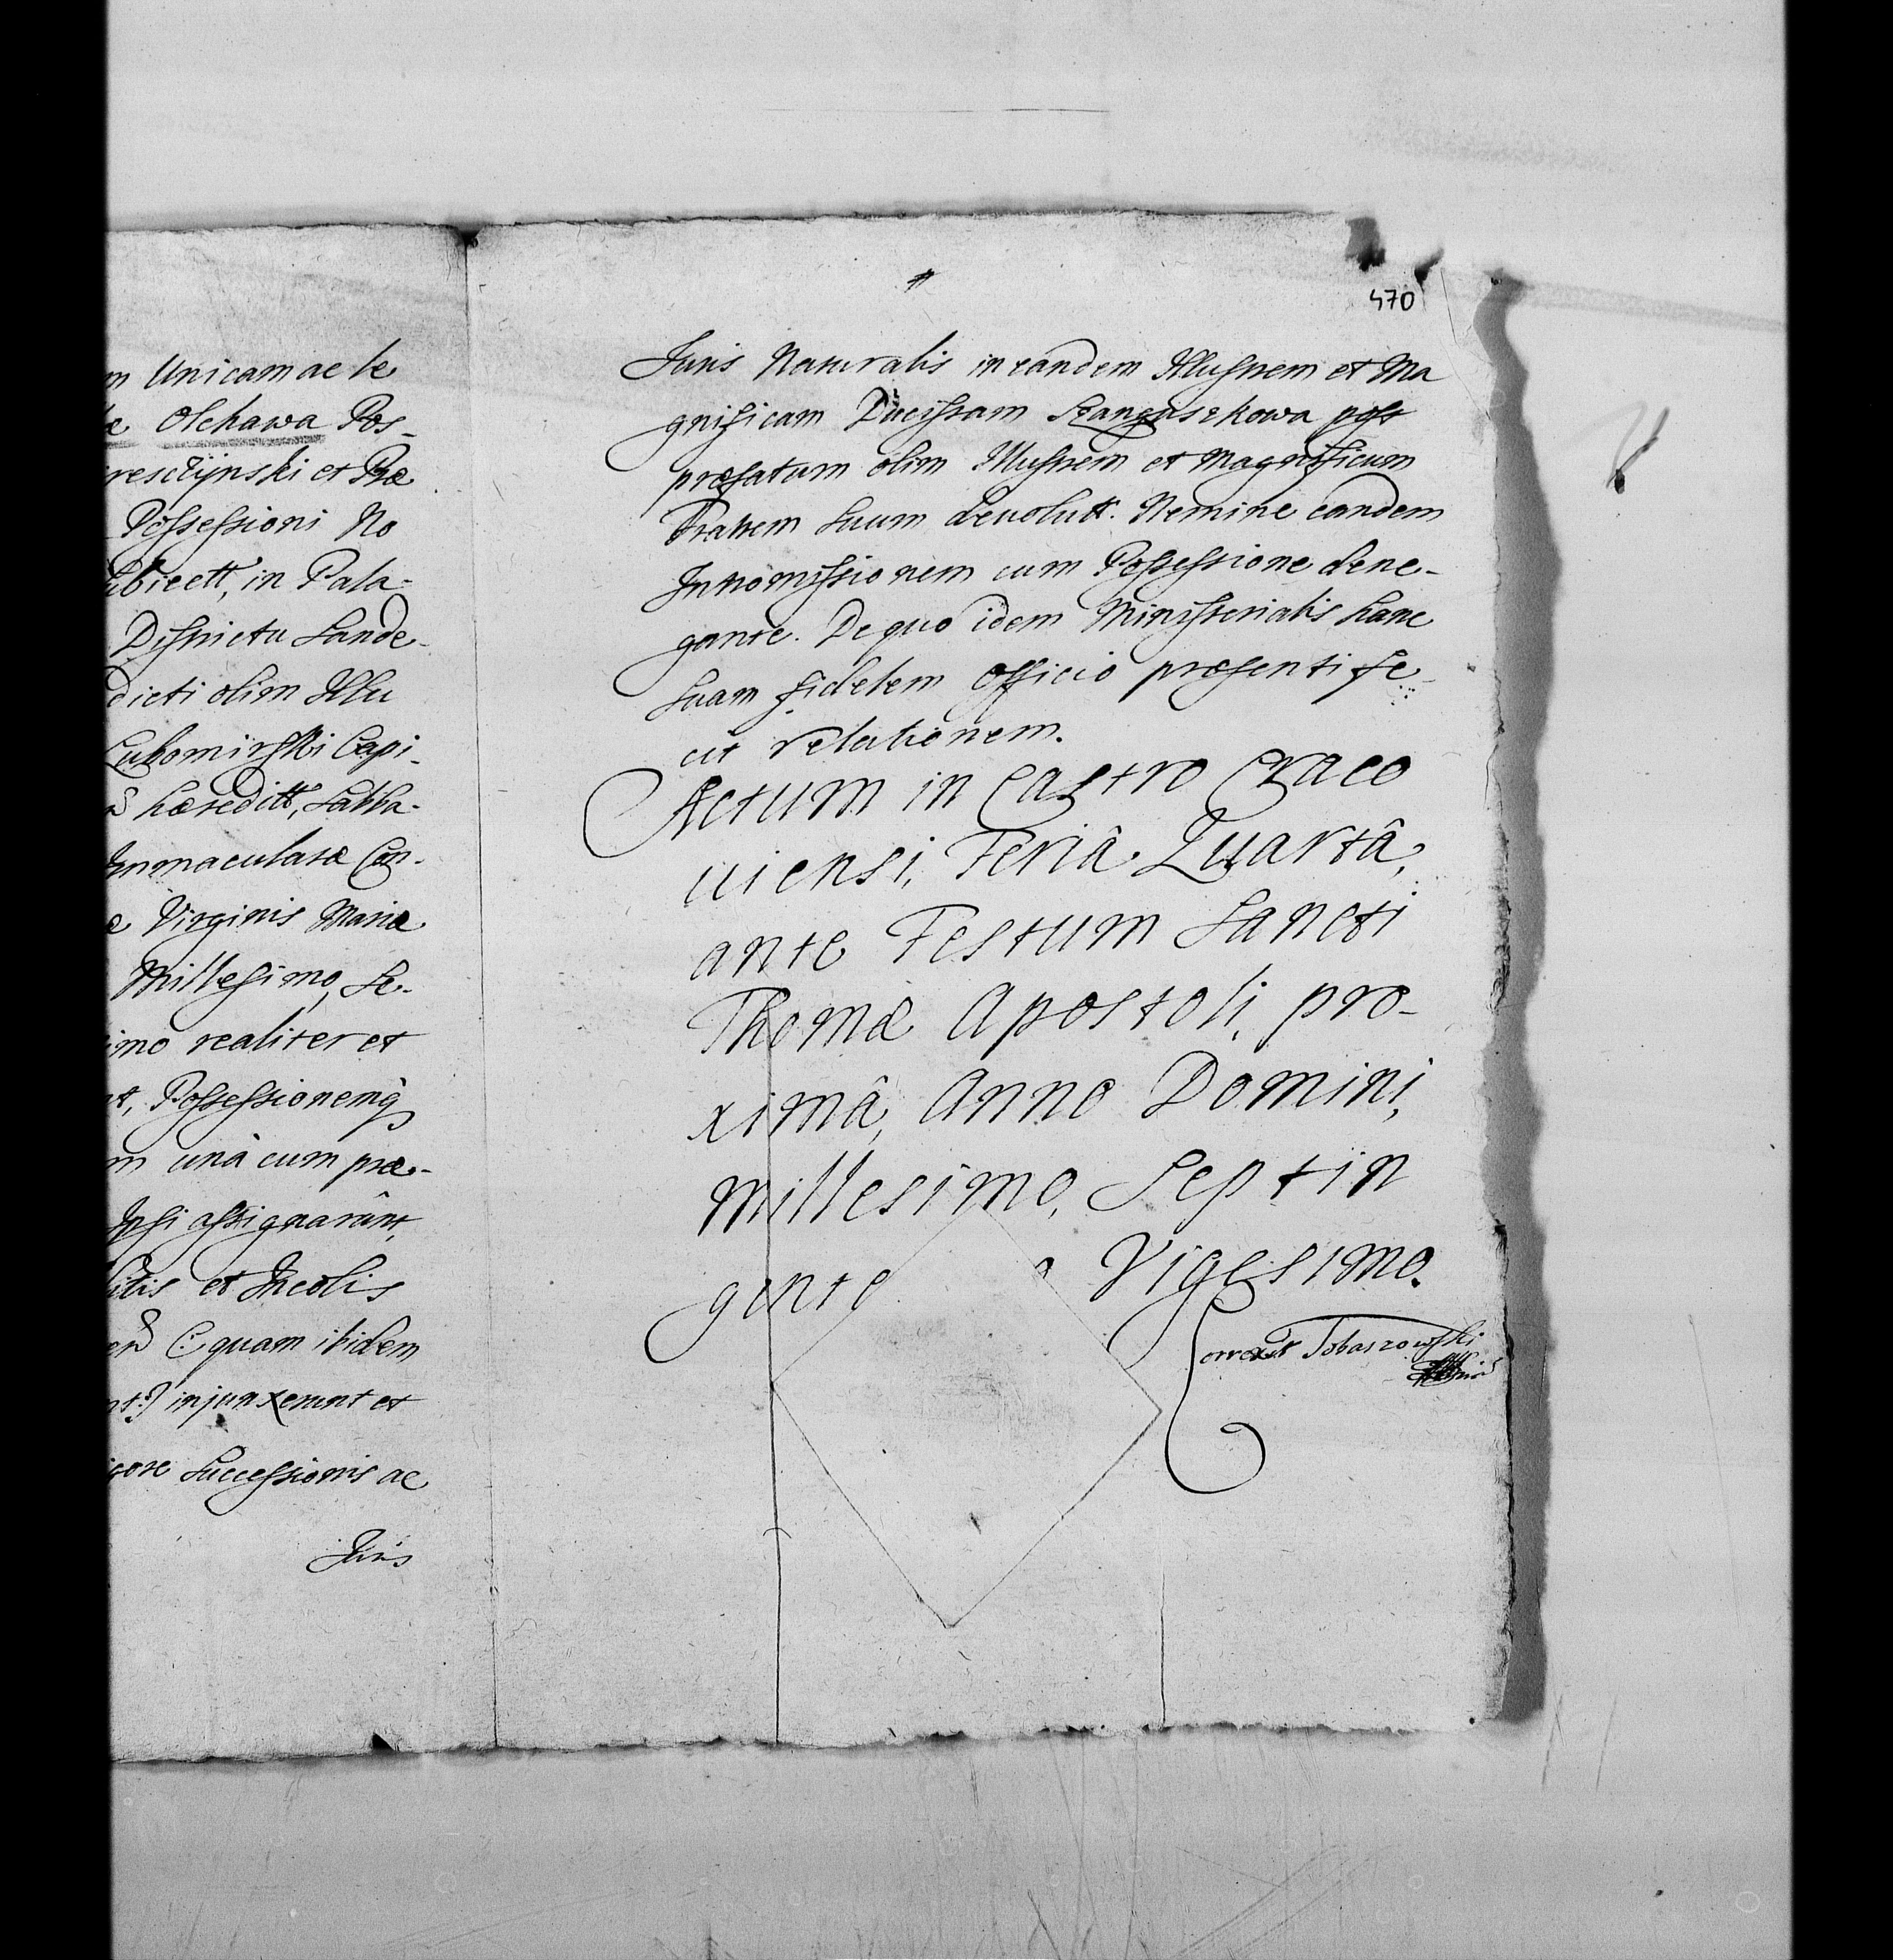 m Unicam ac le
æ Olchawa Pos-
resczÿnski et Præ
Possessioni No
ubiectt, in Pala-
Districtu Sande-
dicti olim Illu
Lubomirski Capi-
hæreditt, Sabba-
Immaculatæ Con-
æ Virginis Mariæ
Millesimo, Se-
imo realiter et
nt, Possessionemq
m unà cum præ-
Ipsi assignarunt,
litis et Incolis
C: quam ibidem
nt:) injunxerunt et
igore Successionis ac
Juris
470
Juris Naturalis in eandem Illustrem et Ma
gnificam Ducissam Sanguszkowa post
præfatum olim Illustrem et Magnificum
Fratrem Suum devolutt. Nemine eandem
Intromissionem cum Possessione dene-
gante. De quo idem Ministerialis hanc
Suam fidelem Officio præsenti fe-
cit relationem.
Actum in Castro Craco
uiensi, Feriâ Quartâ,
ante Festum Sancti
Thomæ Apostoli, pro-
ximâ, Anno Domini,
Millesimo, Septin
gente o Vigesimo.
Correxit Tobaszowski